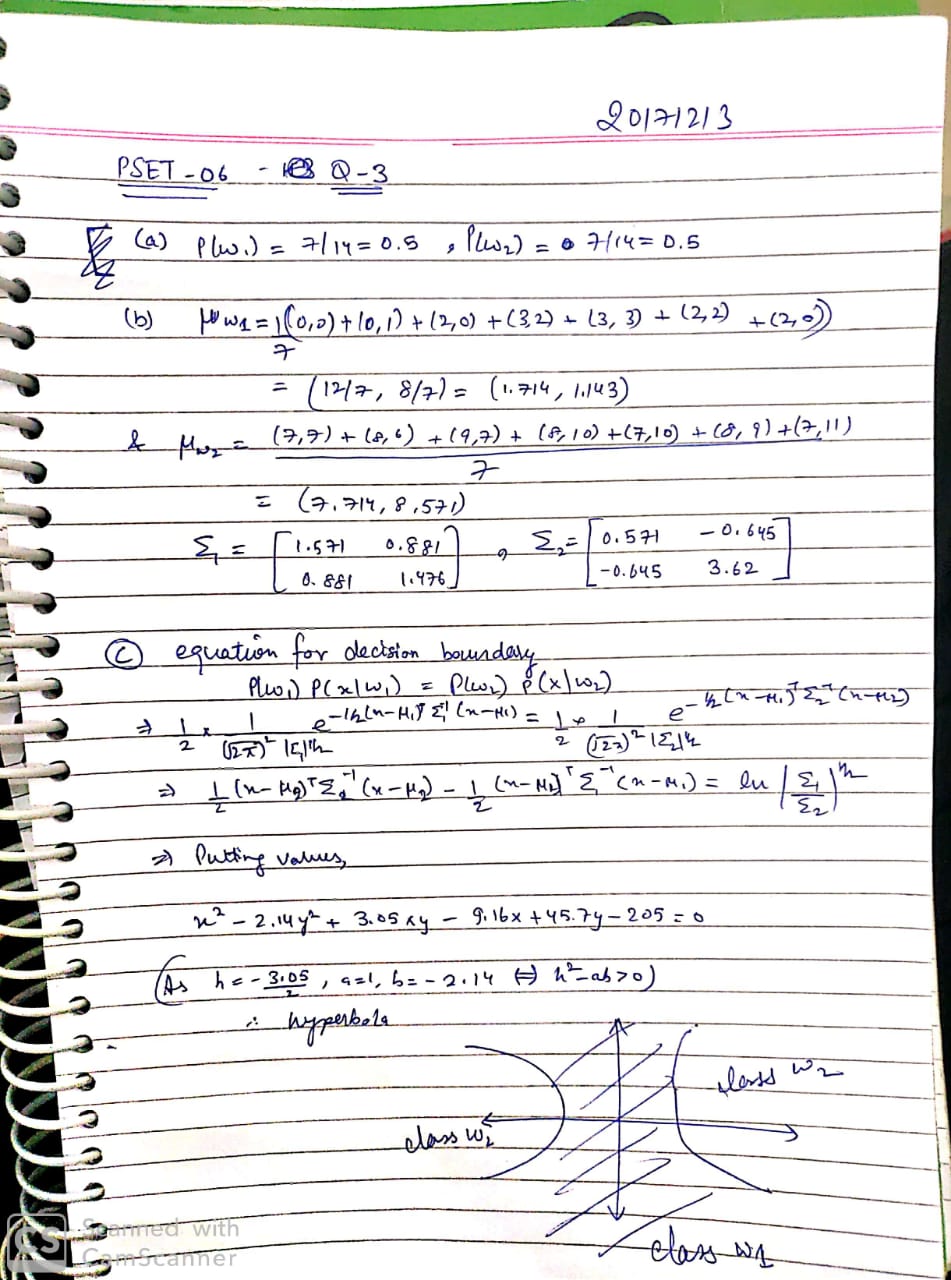 20171213
PSET-06 - Q-3
(a) P(w₁) = 7/14 = 0.5 , P(w₂) = 7/14 = 0.5
(b) μw₁ = 1/7 ((0,0) + (0,1) + (2,0) + (3,2) + (3,3) + (2,2) + (2,0))
= (12/7, 8/7) = (1.714, 1.143)
& μw₂ = (7,7) + (8,6) + (9,7) + (8,10) + (7,10) + (8,9) + (7,11) / 7
= (7.714, 8.571)
Σ₁ = [1.571 0.881 , Σ₂ = [0.571 -0.645
0.881 1.476] -0.645 3.62]
(c) equation for decision boundary
P(w₁) P(x|w₁) = P(w₂) P(x|w₂)
⇒ 1/2 × 1/((√2π)² |Σ₁|^½) e^(-½(x-μ₁)ᵀ Σ₁⁻¹ (x-μ₁)) = 1/2 × 1/((√2π)² |Σ₂|^½) e^(-½(x-μ₂)ᵀ Σ₂⁻¹ (x-μ₂))
⇒ 1/2 (x-μ₂)ᵀ Σ₂⁻¹ (x-μ₂) - 1/2 (x-μ₁)ᵀ Σ₁⁻¹ (x-μ₁) = ln |Σ₁/Σ₂|^½
⇒ Putting values,
x² - 2.14y² + 3.05xy - 9.16x + 45.7y - 205 = 0
(As h = -3.05/2 , a=1, b= -2.14 ⇔ h²-ab>0)
∴ hyperbola
class w₂
class w₂
class w1
CS Scanned with
CamScanner